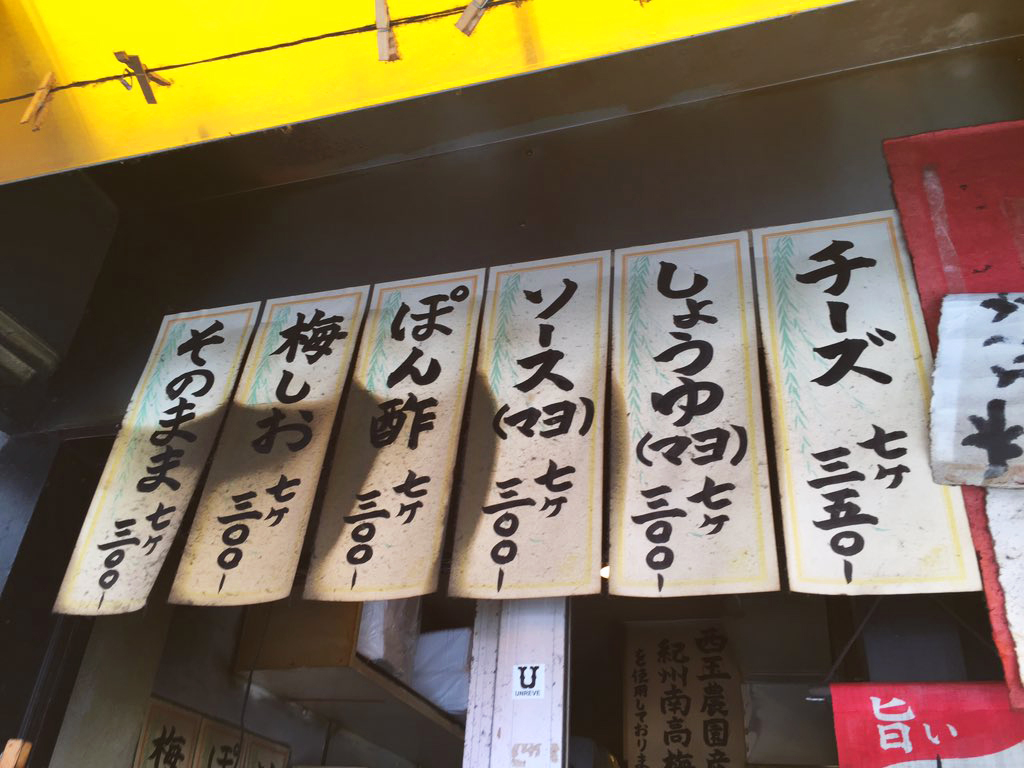 チーズ
七ケ
三五〇ー
しょうゆ
(マヨ)
七ケ
三〇〇ー
ソース
(マヨ)
七ケ
三〇〇ー
ぽん酢
七ケ
三〇〇ー
梅しお
七ケ
三〇〇ー
そのまま
七ケ
三〇〇ー
西玉農園産
紀州南高梅
を使用しておりま
U
UNREVE
旨い
梅
ぽ